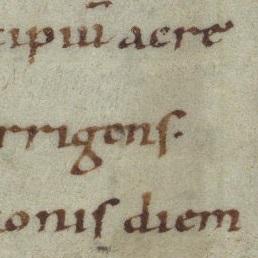 cipiū acre
rrigens.
onis diem